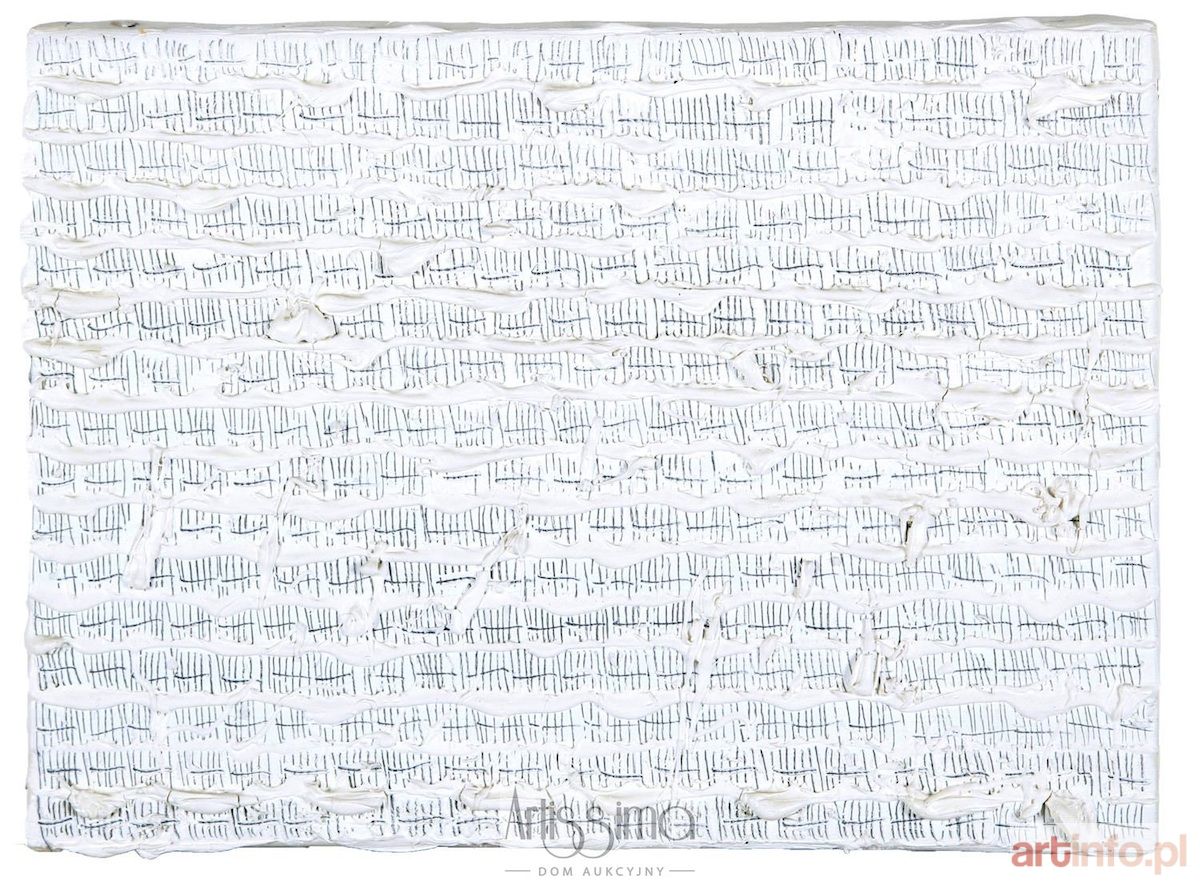 Artissima
DOM AUKCYJNY
artinfo.pl